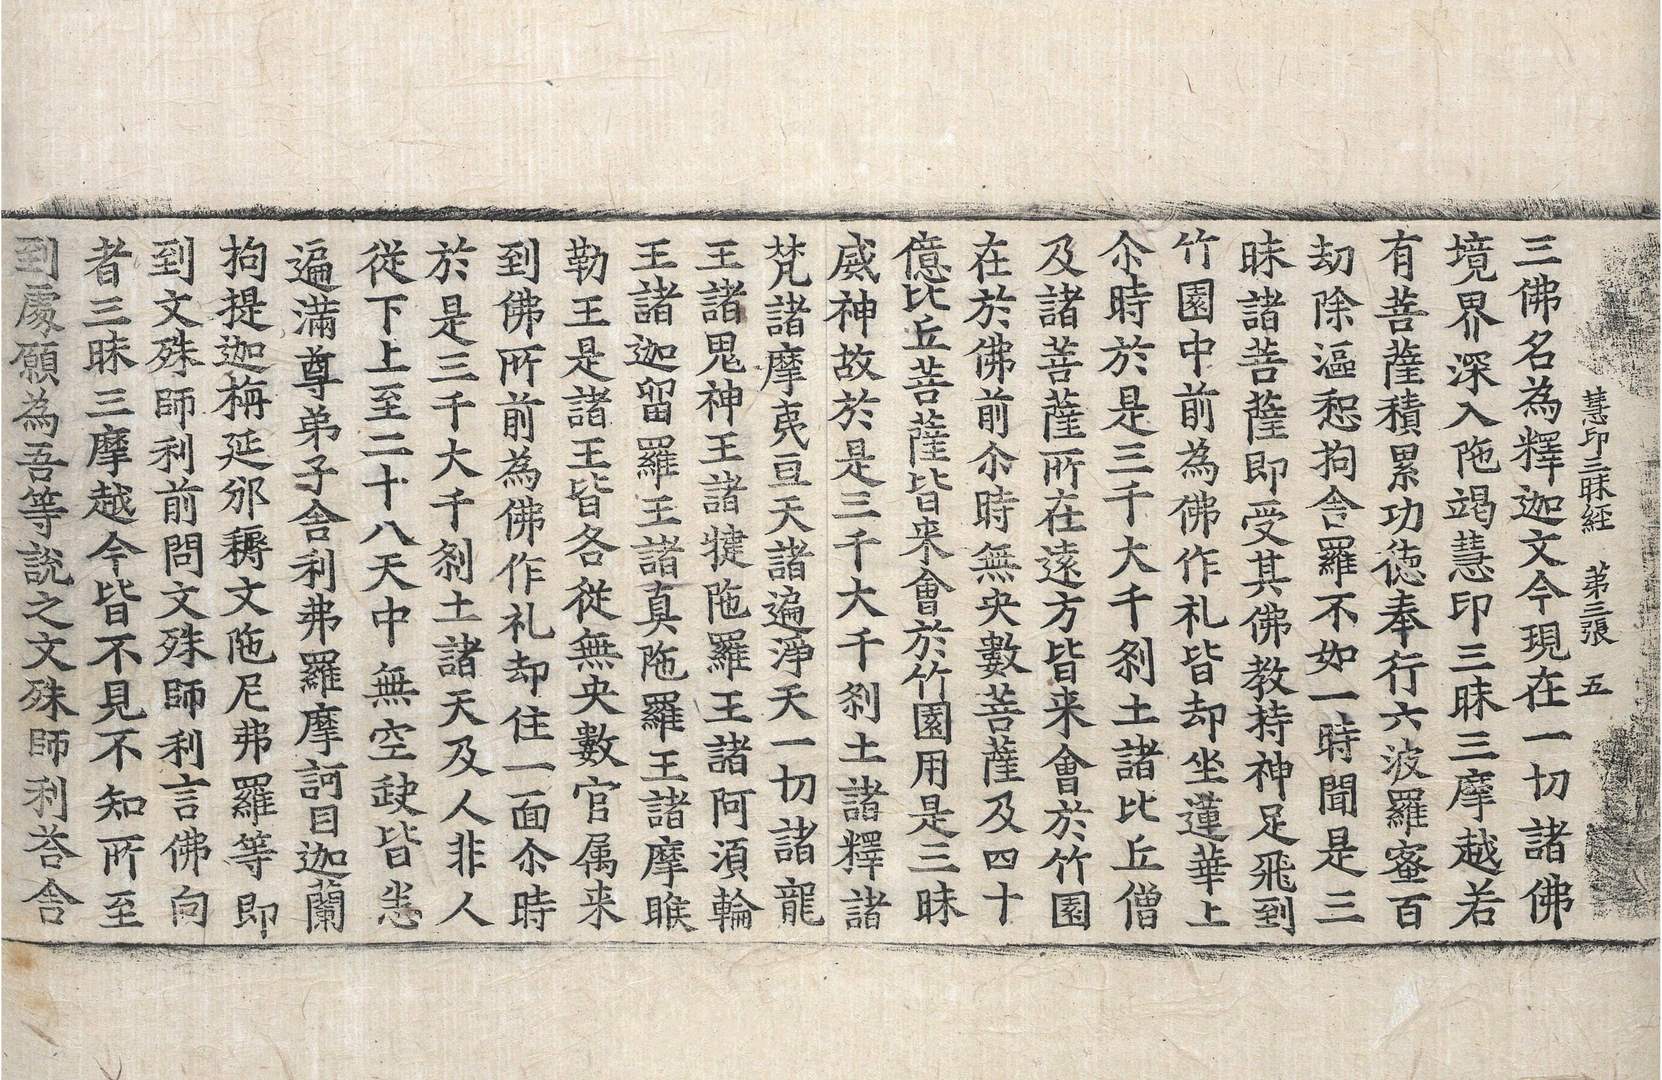 慧印三昧經　第三張　五
三佛名為釋迦文今現在一切諸佛
境界深入陁竭慧印三昧三摩越若
有菩薩積累功徳奉行六波羅蜜百
劫除漚惒拘舍羅不如一時聞是三
昧諸菩薩即受其佛教持神足飛到
竹園中前為佛作礼皆却坐蓮華上
尒時於是三千大千刹土諸比丘僧
及諸菩薩所在遠方皆来會於竹園
在於佛前尒時無央數菩薩及四十
億比丘菩薩皆来會於竹園用是三昧
威神故於是三千大千刹土諸釋諸
梵諸摩夷亘天諸遍淨天一切諸龍
王諸鬼神王諸揵陁羅王諸阿湏輪
王諸迦留羅王諸真陁羅王諸摩睺
勒王是諸王皆各従無央數官属来
到佛所前為佛作礼却住一面尒時
於是三千大千刹土諸天及人非人
従下上至二十八天中無空𡙇皆悉
遍滿尊弟子舍利弗羅摩訶目迦蘭
拘提迦栴延邠耨文陁尼弗羅等即
到文殊師利前問文殊師利言佛向
者三昧三摩越今皆不見不知所至
到處願為吾等說之文殊師利荅舍